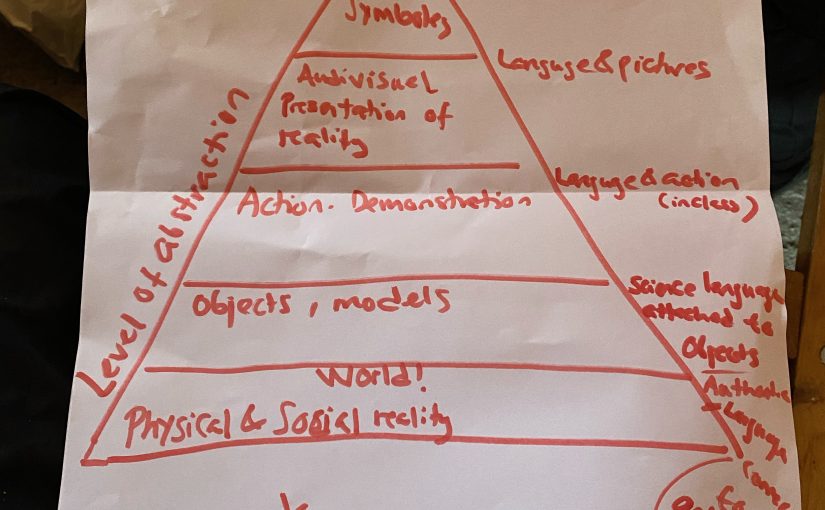 Symboles
Language & pictures
Audivisuel
Presentation of
reality
Level of abstraction
Languge & action
(incless)
Action. Demonstration
Science language
attached to
Objects
Objects, models
World!
Authentic
- Language
Physical & Social reality